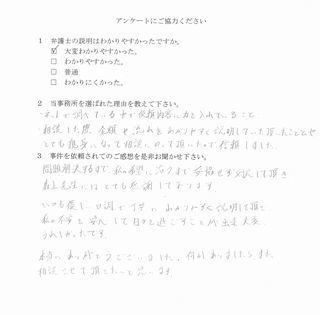 アンケートにご協力ください
1 弁護士の説明はわかりやすかったですか。
☑ 大変わかりやすかった。
□ わかりやすかった。
□ 普通
□ わかりにくかった。
2 当事務所を選ばれた理由を教えて下さい。
力を入れていること
相談した際、金額や流れをわかりやすく説明して頂いたことや
とても親身になって相談にのって頂いたので依頼しました。
3 事件を依頼されてのご感想を是非お聞かせ下さい。
問題解決するまで、私の希望に
先生にはとても感謝しております
いつも優しい口調で丁寧に、わかりやすく説明して頂き
私の不安も安心して日々を過ごすことが出来、大変
うれしかったです。
本当にありがとうございました。何かありましたらまた
相談させて頂きたいと思います